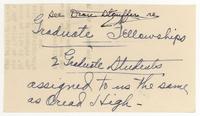 See Dean Stouffer re
Graduate Fellowships
2 Graduate Students
assigned to us the same
as Oread High -